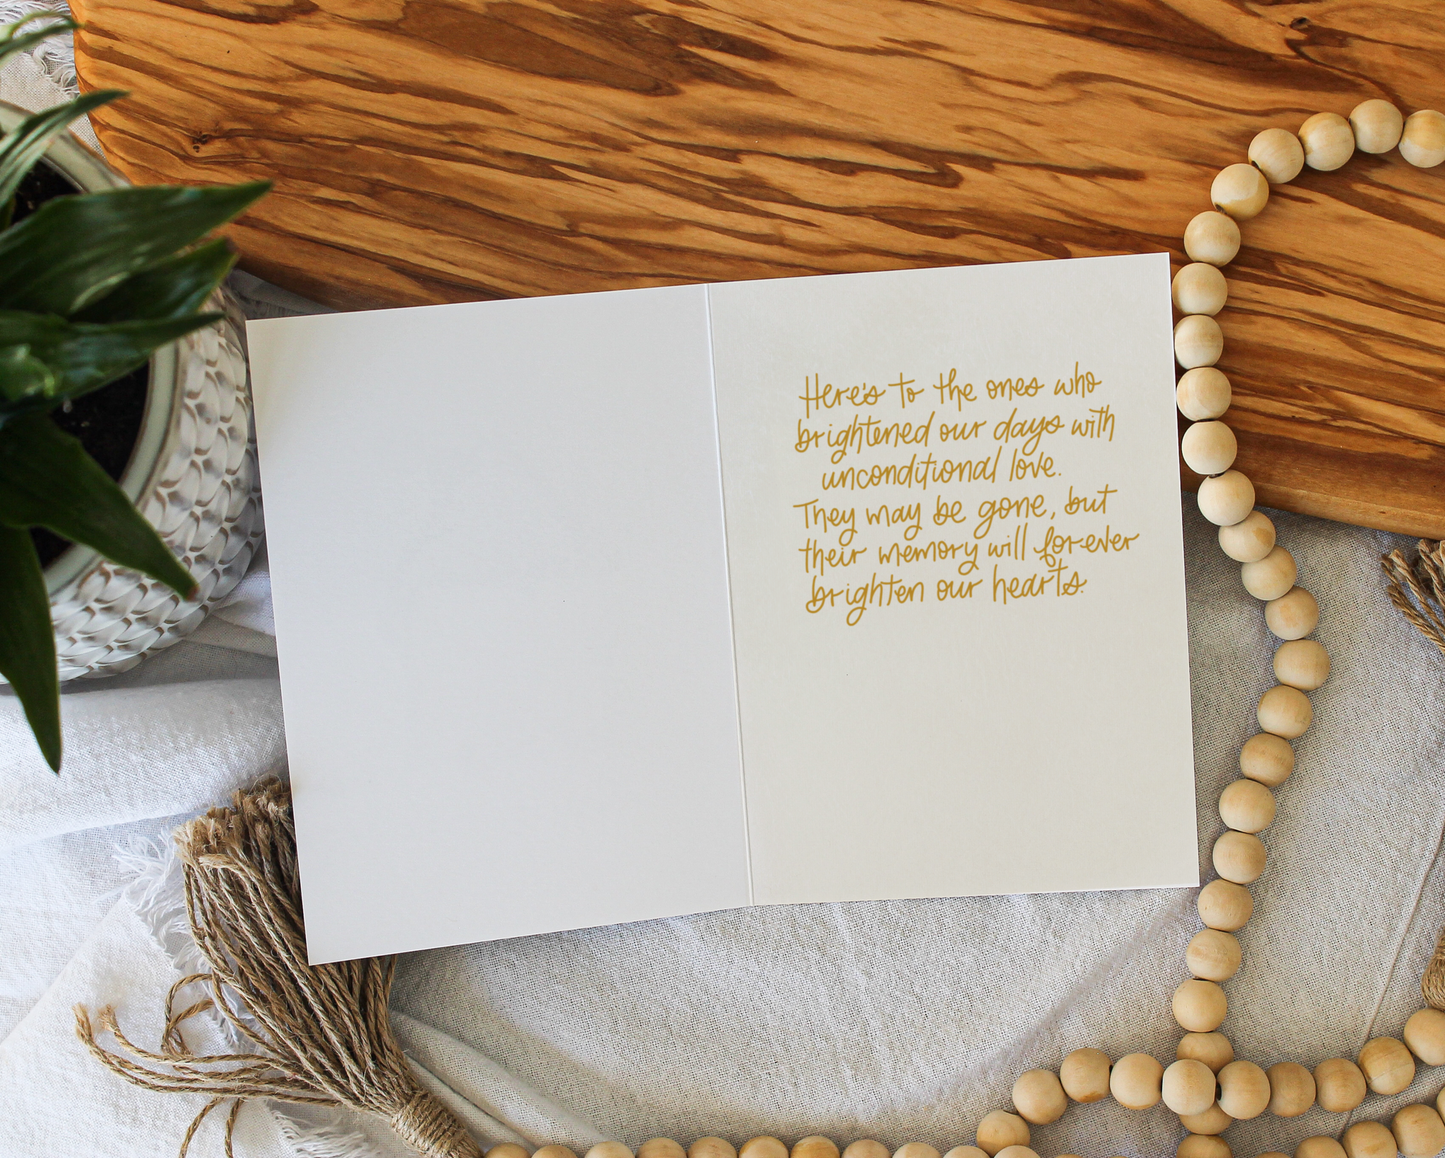 Here's to the ones who
brightened our days with
unconditional love.
They may be gone, but
their memory will forever
brighten our hearts.